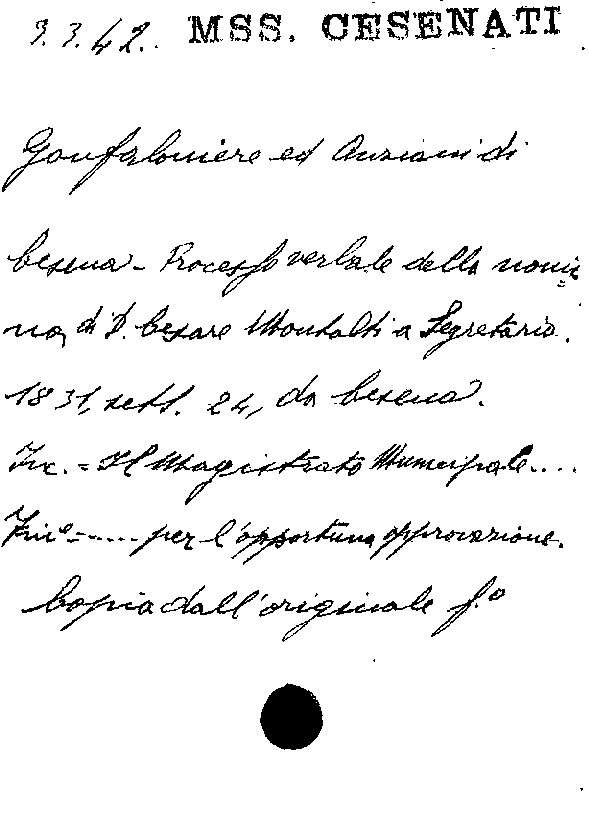 3.3.42. MSS. CESENATI
Gonfaloniere ed Anziani di
Cesena - Processo verbale della nomi=
na, di D. Cesare Montalti a Segretario.
1831, sett. 24, da Cesena.
Inc. = Il Magistrato Municipale....
Fine =..... per l'opportuna approvazione.
Copia dall'originale f.º